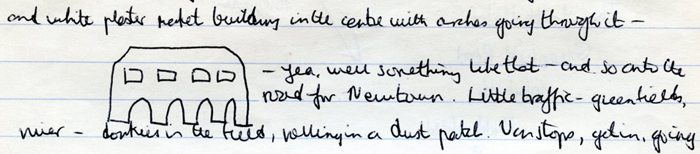 and white plaster market building in the centre with arches going through it –
– yea, well something like that – and so onto the
road for Newtown. Little traffic – green fields,
river – donkies in the field, rolling in a dust patch. Van stops, get in, going